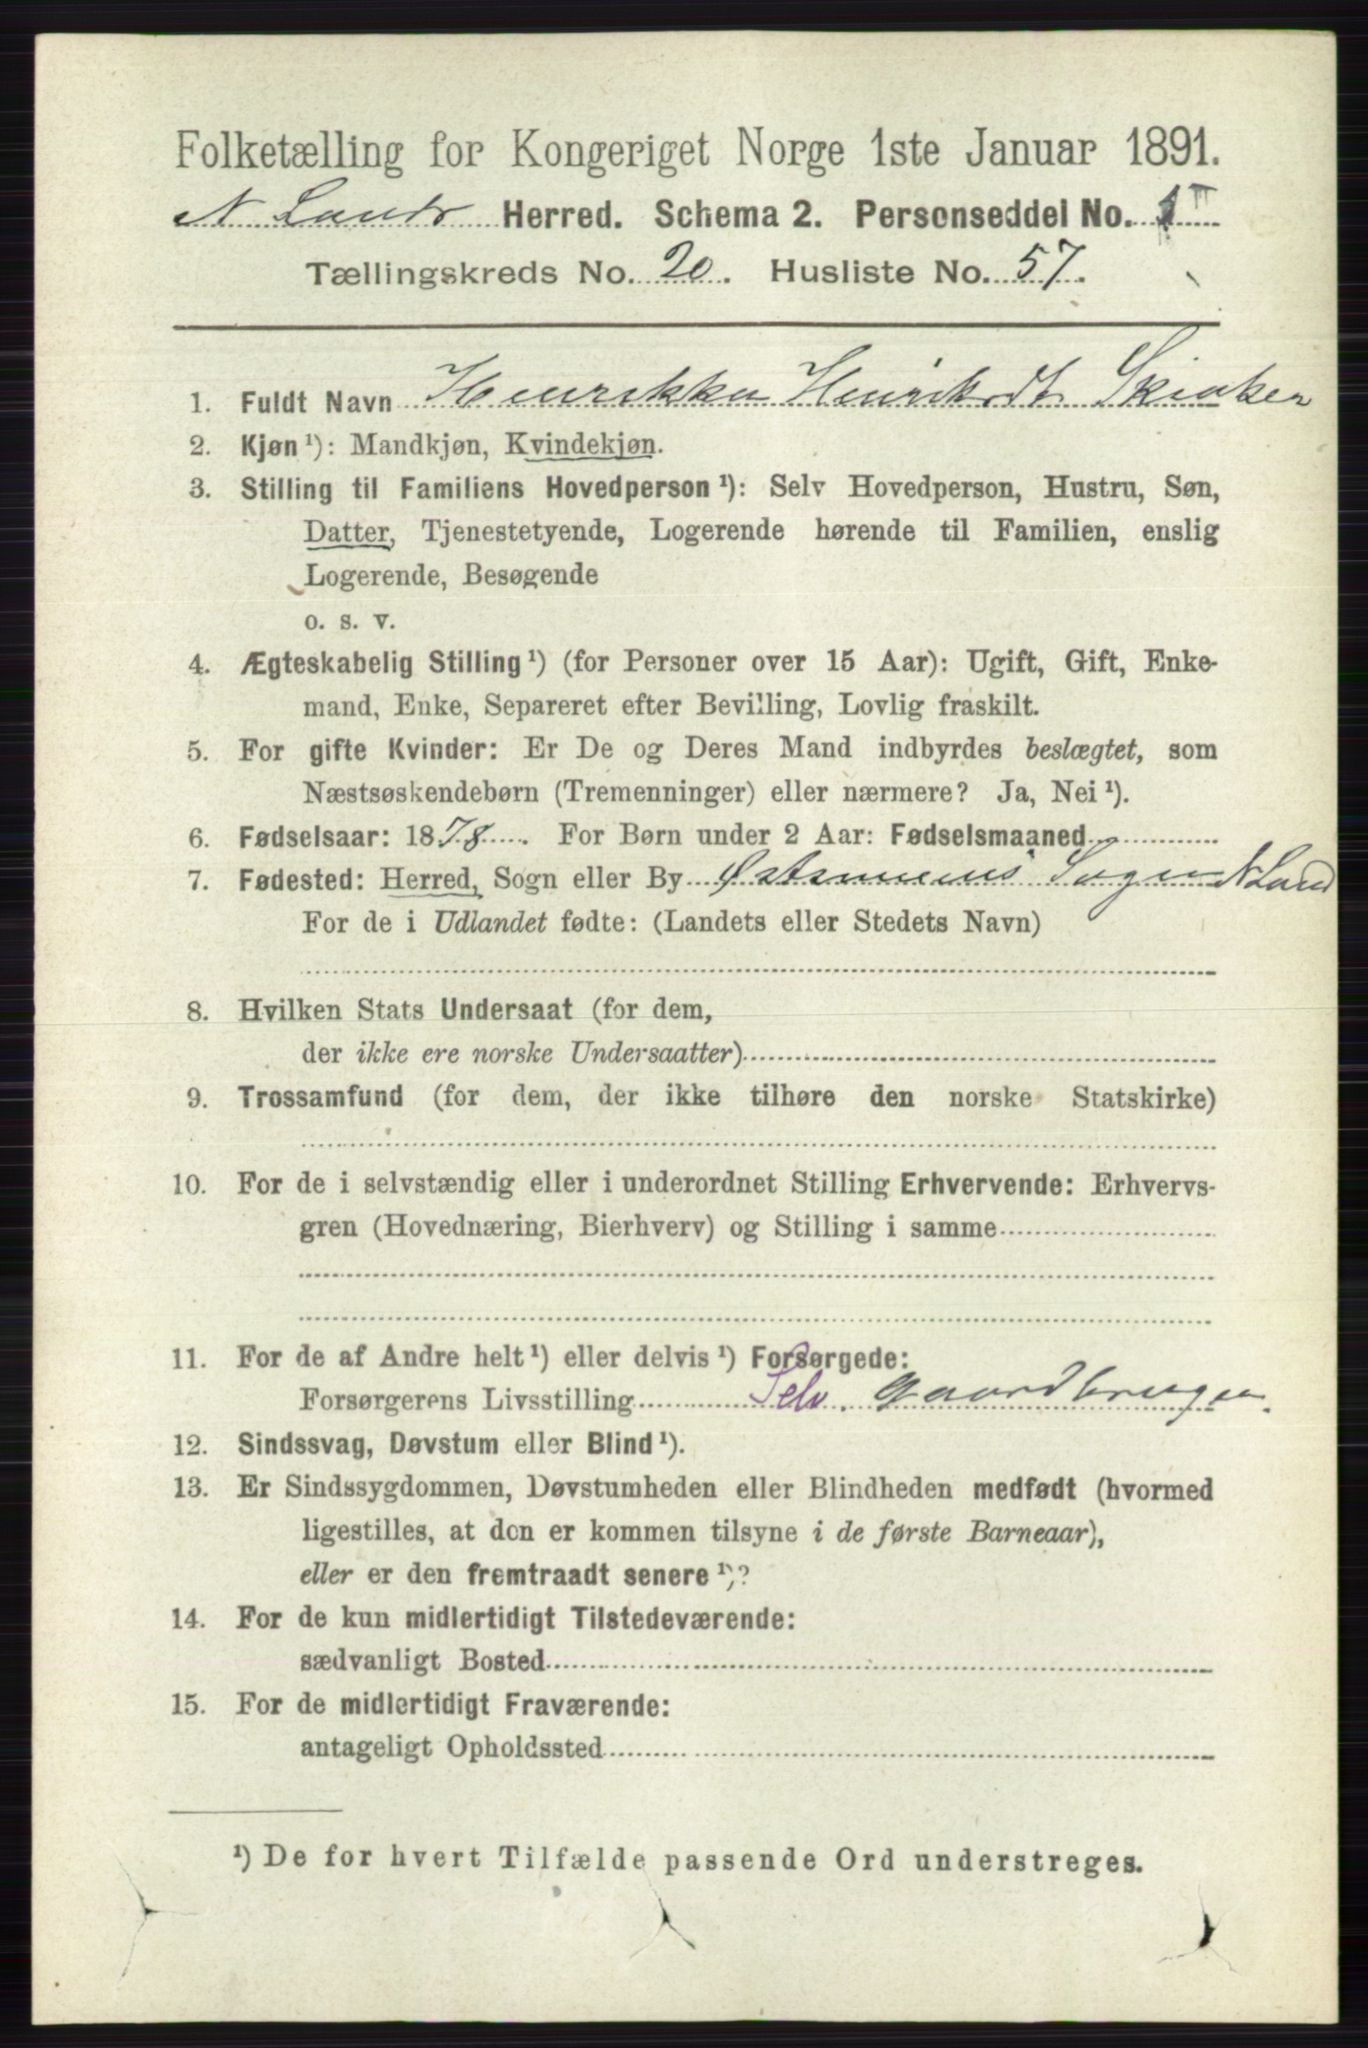 Folketælling for Kongeriget Norge 1ste Januar 1891.
N Land Herred. Schema 2. Personseddel No.
Tællingskreds No. 20. Husliste No. 57.
1. Fuldt Navn Henrikka Henriksdt
2. Kjøn ¹): Mandkjøn, Kvindekjøn.
3. Stilling til Familiens Hovedperson ¹): Selv Hovedperson, Hustru, Søn,
Datter, Tjenestetyende, Logerende hørende til Familien, enslig
Logerende, Besøgende
o. s. v.
4. Ægteskabelig Stilling ¹) (for Personer over 15 Aar): Ugift, Gift, Enke-
mand, Enke, Separeret efter Bevilling, Lovlig fraskilt.
5. For gifte Kvinder: Er De og Deres Mand indbyrdes beslægtet, som
Næstsøskendebørn (Tremenninger) eller nærmere? Ja, Nei ¹).
6. Fødselsaar: 1878. For Børn under 2 Aar: Fødselsmaaned
7. Fødested: Herred, Sogn eller By Østsinnens Sogn N Land
For de i Udlandet fødte: (Landets eller Stedets Navn)
8. Hvilken Stats Undersaat (for dem,
der ikke ere norske Undersaatter)
9. Trossamfund (for dem, der ikke tilhøre den norske Statskirke)
10. For de i selvstændig eller i underordnet Stilling Erhvervende: Erhvervs-
gren (Hovednæring, Bierhverv) og Stilling i samme
11. For de af Andre helt ¹) eller delvis ¹) Forsørgede:
Forsørgerens Livsstilling Selv. Gaardbruger.
12. Sindssvag, Døvstum eller Blind ¹).
13. Er Sindssygdommen, Døvstumheden eller Blindheden medfødt (hvormed
ligestilles, at den er kommen tilsyne i de første Barneaar),
eller er den fremtraadt senere ¹)?
14. For de kun midlertidigt Tilstedeværende:
sædvanligt Bosted
15. For de midlertidigt Fraværende:
antageligt Opholdssted
¹) De for hvert Tilfælde passende Ord understreges.